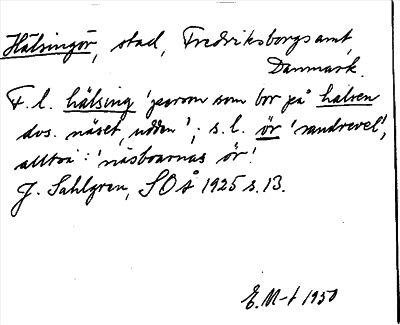 Hälsingör, stad, Fredriksborgs amt,
Danmark.
F. l. hälsing 'person som bor på halsen
dvs. näset, udden'; s. l. ör 'sandrevel',
alltså: 'näsboarnas ör'.
J. Sahlgren, SOÅ 1925 s. 13.
E. M-t 1950